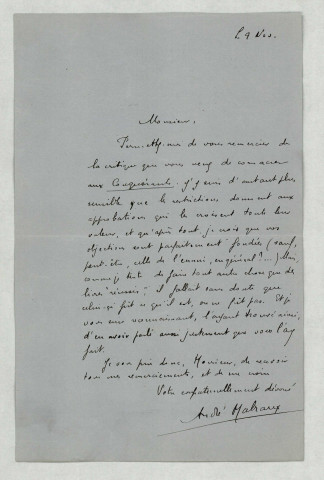 29 Nov.
Monsieur,
Permettez-moi de vous remercier de
la critique que vous venez de consacrer
aux Conquérants. J'y suis d'autant plus
sensible que les restrictions donnent aux
approbations qui le suivent toute leur
valeur, et qu'après tout je crois que vos
objections sont parfaitement fondées (sauf,
peut-être, celle de l'ennui, en général ? ...) Mais,
comme je tente de faire tout autre chose que de
livres réussis, il fallait sans doute que
celui-ci fût ce qu'il est, ou ne fût pas. Et je
vous suis reconnaissant, l'ayant trouvé ainsi,
d'en avoir parlé aussi justement que vous l'avez
fait.
Je vous prie donc, Monsieur, de recevoir
tous mes remerciements, et de me croire
Votre confraternellement dévoué
André Malraux